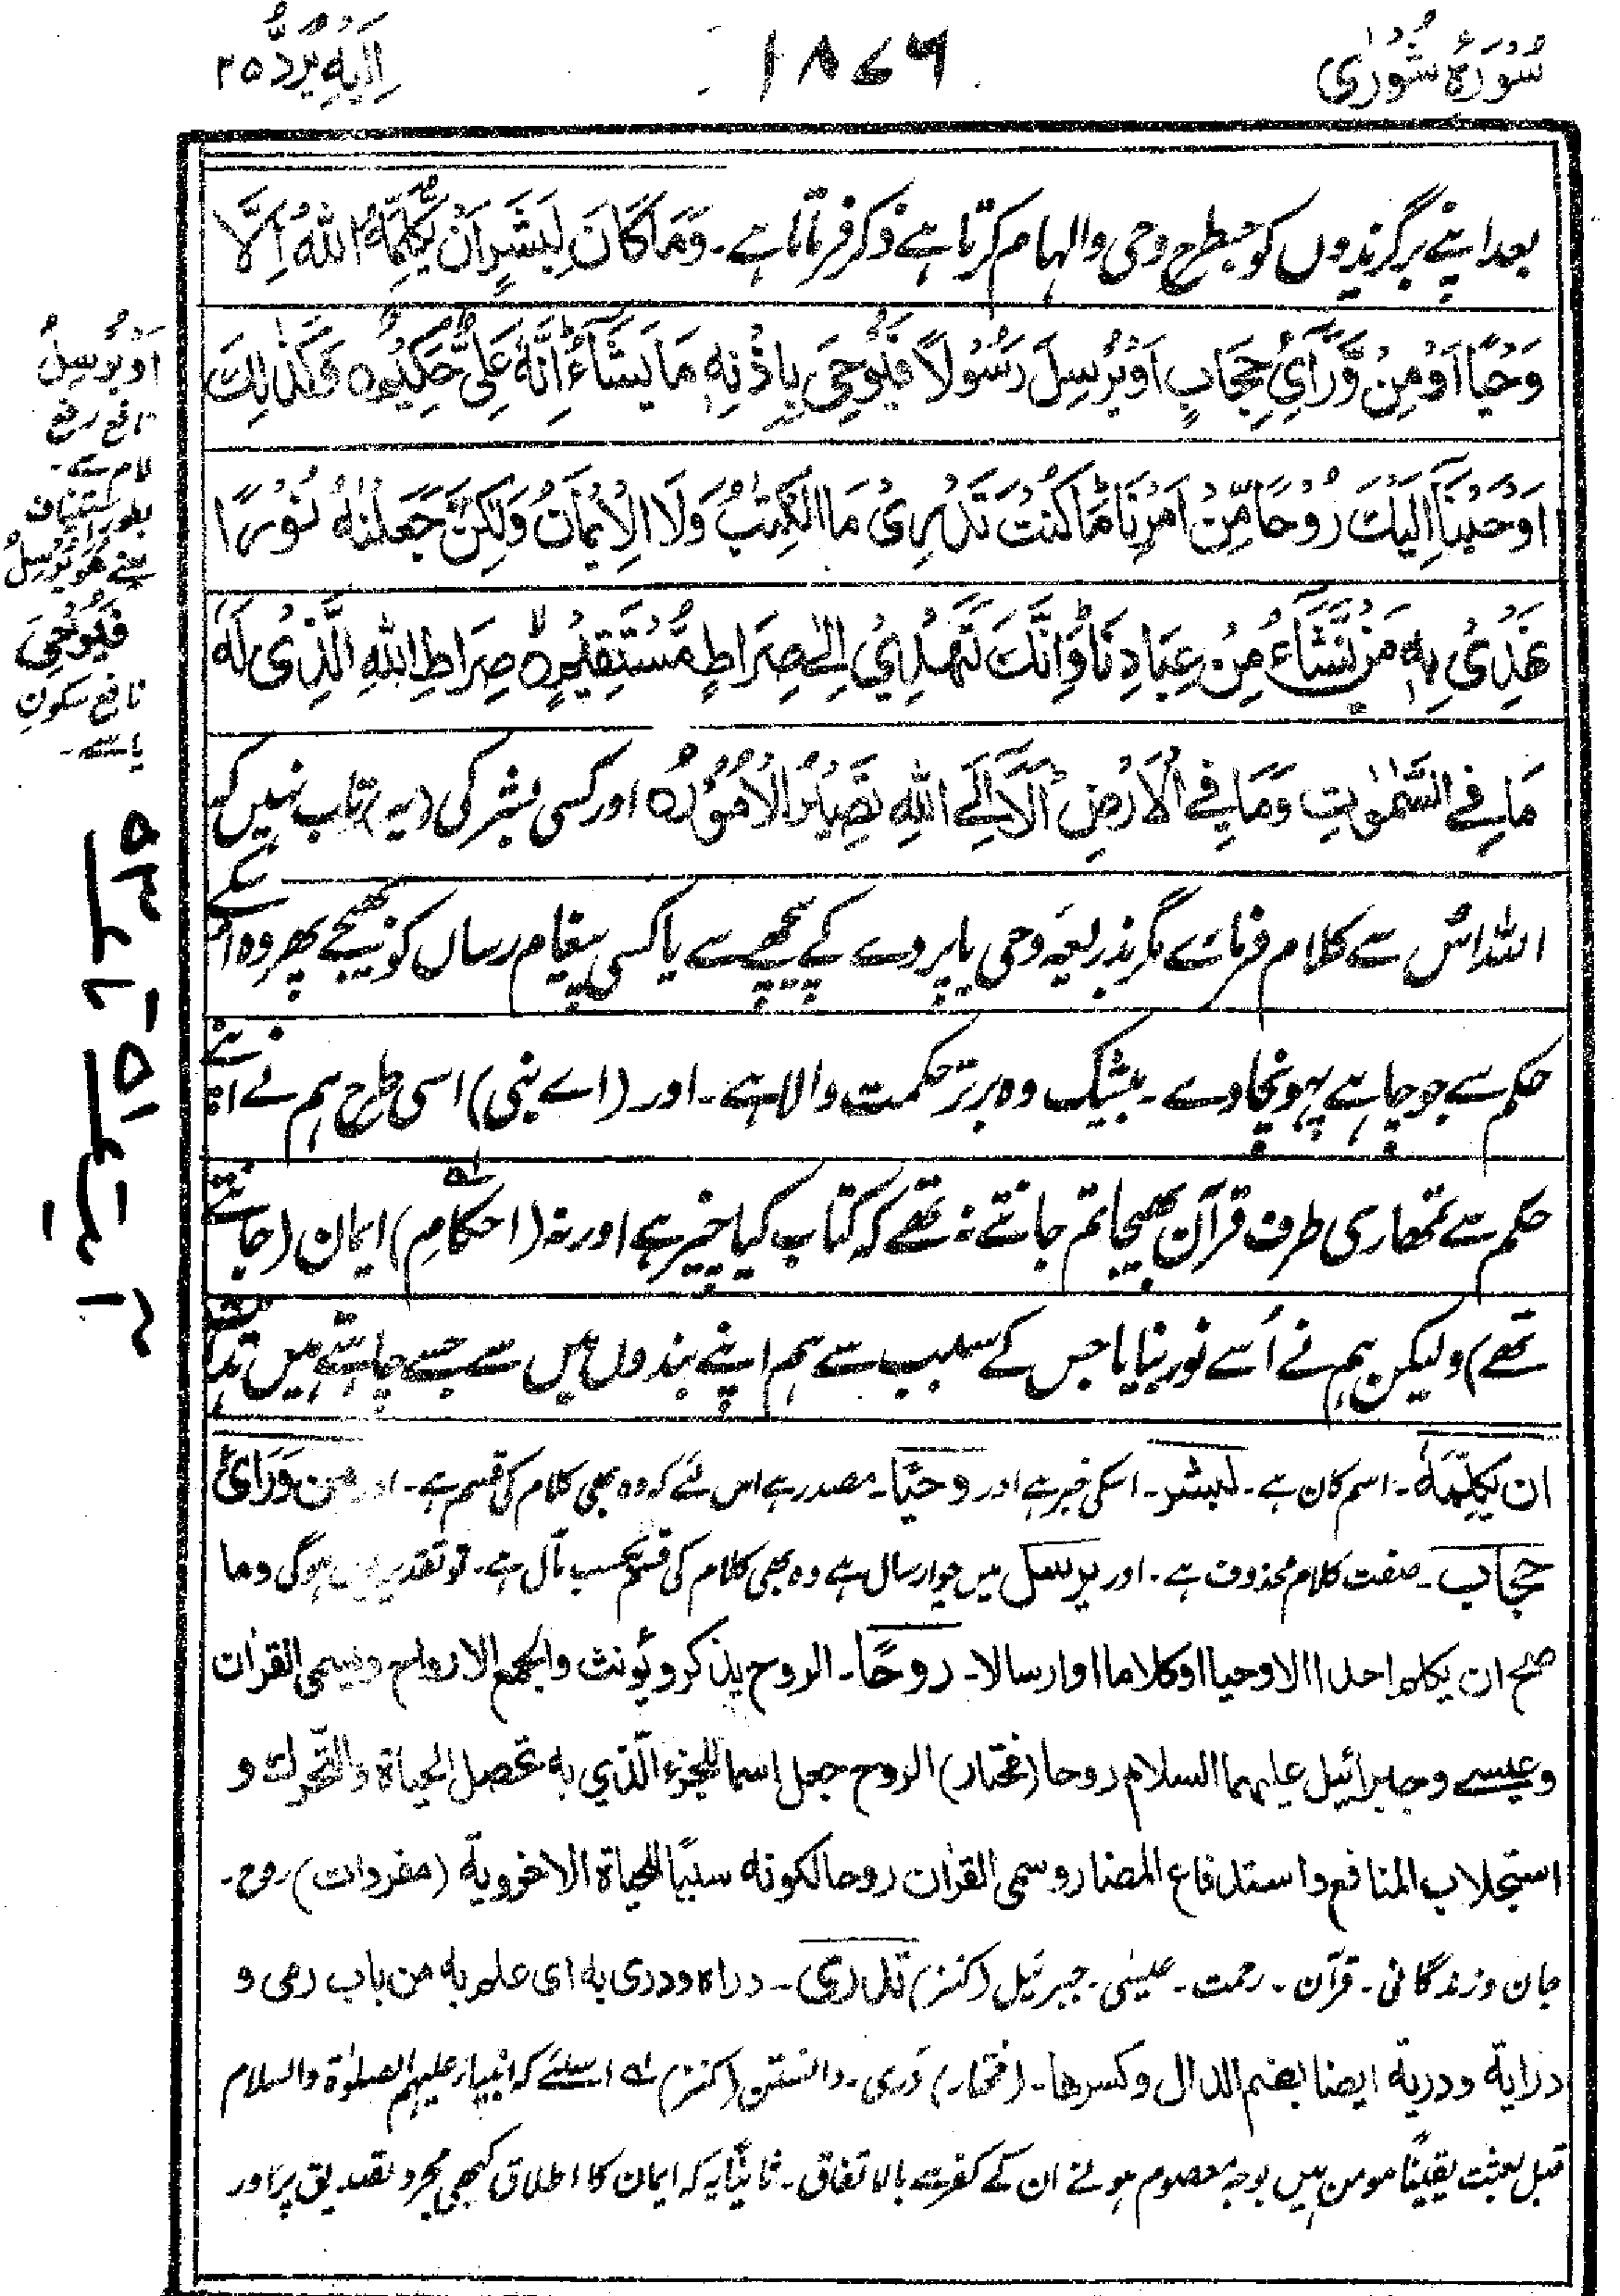 سُوْرَۂ شُوْرٰی
۱۸۷۶
اِلَیْہِ یُرَدُّ ۲۵
بعد اپنے برگزیدوں کو جسطرح وحی والہام کرتا ہے ذکر فرماتا ہے۔ وَمَا كَانَ لِبَشَرٍ اَنْ يُّكَلِّمَهُ اللّٰهُ اِلَّا
وَحْيًا اَوْ مِنْ وَّرَآئِ حِجَابٍ اَوْ يُرْسِلَ رَسُوْلًا فَيُوْحِيَ بِاِذْنِهٖ مَا يَشَآءُ اِنَّهٗ عَلِيٌّ حَكِيْمٌ ہ وَكَذٰلِكَ
اَوْحَيْنَآ اِلَيْكَ رُوْحًا مِّنْ اَمْرِنَا مَا كُنْتَ تَدْرِيْ مَا الْكِتٰبُ وَلَا الْاِيْمَانُ وَلٰكِنْ جَعَلْنٰهُ نُوْرًا
نَّهْدِيْ بِهٖ مَنْ نَّشَآءُ مِنْ عِبَادِنَا وَاِنَّكَ لَتَهْدِيْٓ اِلٰى صِرَاطٍ مُّسْتَقِيْمٍ ہ صِرَاطِ اللّٰهِ الَّذِيْ لَهٗ
مَا فِي السَّمٰوٰتِ وَمَا فِي الْاَرْضِ اَلَآ اِلَى اللّٰهِ تَصِيْرُ الْاُمُوْرُ ہ اور کسی بشر کی (یہ) تاب نہیں کہ
اللہ اس سے کلام فرمائے مگر بذریعۂ وحی یا پردے کے پیچھے سے یا کسی پیغام رساں کو بھیجے پھر وہ اسکے
حکم سے جو چاہے پہونچاوے۔ بیشک وہ برتر حکمت والا ہے۔ اور (اے نبی) اسی طرح ہم نے اپنے
حکم سے تمھاری طرف قرآن بھیجا تم جانتے نہ تھے کہ کتاب کیا چیز ہے اور نہ (احکامِ) ایمان (جانتے
تھے) ولیکن ہم نے اُسے نور بنایا جس کے سبب سے ہم اپنے بندوں میں سے جسے چاہتے ہیں
ان یکلّمَہٗ۔ اسم کان ہے۔ لبشر۔ اسکی خبر ہے اور وحیًا۔ مصدر ہے اس لئے کہ وہ بھی کلام کی قسم ہے۔ اور من وَرَائِ
حجاب۔ صفت کلام محذوف ہے۔ اور یرسل میں جو ارسال ہے وہ بھی کلام کی قسم بحسب مآل ہے۔ تو تقدیر یوں ہوگی وما
صح ان یکلم احدا الا وحیا او کلاما او ارسالا۔ روحًا۔ الروح یذکر و یؤنث والجمع الارواح ویسمی القراٰن
وعیسٰے وجبرائیل علیہما السلام روحا (مختار) الروح جعل اسما للجزء الّذی بہ تحصل الحیاة والتحرك و
استجلاب المنافع واستدفاع المضار وسمی القراٰن روحا لکونہ سببًا للحیاة الاخرویة (مفردات) روح۔
جان و زندگانی۔ قرآن۔ رحمت۔ عیسٰی۔ جبرئیل (کنز) تدری۔ دراہ ودری بہ ای علم بہ من باب رمی و
درایة ودریة ایضا بضم الدال وکسرھا۔ (مختار) دَری۔ دانستن (کنز) لہ اسلئے کہ انبیاء علیہم الصلوٰة والسلام
قبل بعثت یقینًا مومن ہیں بوجہ معصوم ہونے ان کے کفر سے بالاتفاق۔ ثانیًا یہ کہ ایمان کا اطلاق کبھی مجرد تصدیق پر اور
اَوْ یُرْسِلُ
نافع رفع
لام سے۔
بطور استیناف
یعنے ھو یُرْسِلُ
فَیُوْحِیْ
نافع سکونِ
یا سے۔